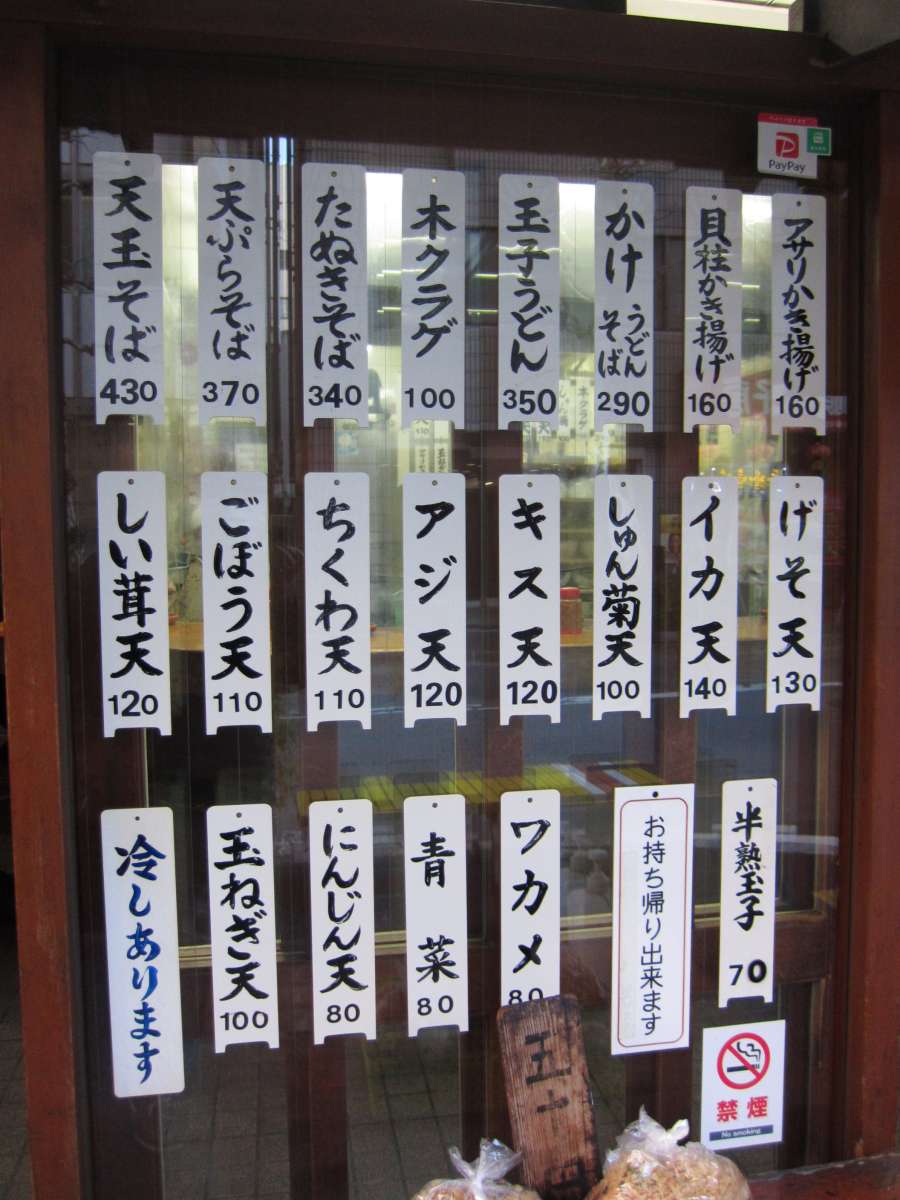 PayPay
天玉そば
430
天ぷらそば
370
たぬきそば
340
木クラゲ
100
玉子うどん
350
かけ うどん そば
290
貝柱かき揚げ
160
アサリかき揚げ
160
しい茸天
120
ごぼう天
110
ちくわ天
110
アジ天
120
キス天
120
しゅん菊天
100
イカ天
140
げそ天
130
冷しあります
玉ねぎ天
100
にんじん天
80
青菜
80
ワカメ
80
お持ち帰り出来ます
半熟玉子
70
禁煙
No smoking